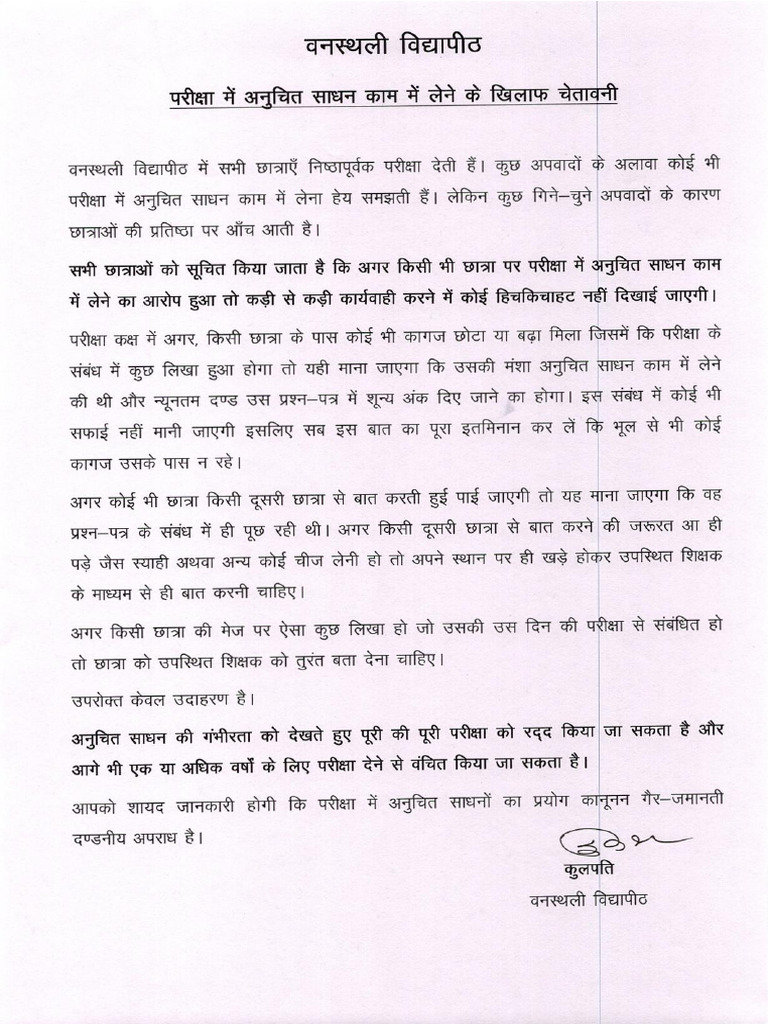 वनस्थली विद्यापीठ
परीक्षा में अनुचित साधन काम में लेने के खिलाफ चेतावनी
वनस्थली विद्यापीठ में सभी छात्राएँ निष्ठापूर्वक परीक्षा देती हैं। कुछ अपवादों के अलावा कोई भी
परीक्षा में अनुचित साधन काम में लेना हेय समझती हैं। लेकिन कुछ गिने–चुने अपवादों के कारण
छात्राओं की प्रतिष्ठा पर आँच आती है।
सभी छात्राओं को सूचित किया जाता है कि अगर किसी भी छात्रा पर परीक्षा में अनुचित साधन काम
में लेने का आरोप हुआ तो कड़ी से कड़ी कार्यवाही करने में कोई हिचकिचाहट नहीं दिखाई जाएगी।
परीक्षा कक्ष में अगर, किसी छात्रा के पास कोई भी कागज छोटा या बढ़ा मिला जिसमें कि परीक्षा के
संबंध में कुछ लिखा हुआ होगा तो यही माना जाएगा कि उसकी मंशा अनुचित साधन काम में लेने
की थी और न्यूनतम दण्ड उस प्रश्न–पत्र में शून्य अंक दिए जाने का होगा। इस संबंध में कोई भी
सफाई नहीं मानी जाएगी इसलिए सब इस बात का पूरा इतमिनान कर लें कि भूल से भी कोई
कागज उसके पास न रहे।
अगर कोई भी छात्रा किसी दूसरी छात्रा से बात करती हुई पाई जाएगी तो यह माना जाएगा कि वह
प्रश्न–पत्र के संबंध में ही पूछ रही थी। अगर किसी दूसरी छात्रा से बात करने की जरूरत आ ही
पड़े जैस स्याही अथवा अन्य कोई चीज लेनी हो तो अपने स्थान पर ही खड़े होकर उपस्थित शिक्षक
के माध्यम से ही बात करनी चाहिए।
अगर किसी छात्रा की मेज पर ऐसा कुछ लिखा हो जो उसकी उस दिन की परीक्षा से संबंधित हो
तो छात्रा को उपस्थित शिक्षक को तुरंत बता देना चाहिए।
उपरोक्त केवल उदाहरण है।
अनुचित साधन की गंभीरता को देखते हुए पूरी की पूरी परीक्षा को रद्द किया जा सकता है और
आगे भी एक या अधिक वर्षों के लिए परीक्षा देने से वंचित किया जा सकता है।
आपको शायद जानकारी होगी कि परीक्षा में अनुचित साधनों का प्रयोग कानूनन गैर–जमानती
दण्डनीय अपराध है।
कुलपति
वनस्थली विद्यापीठ